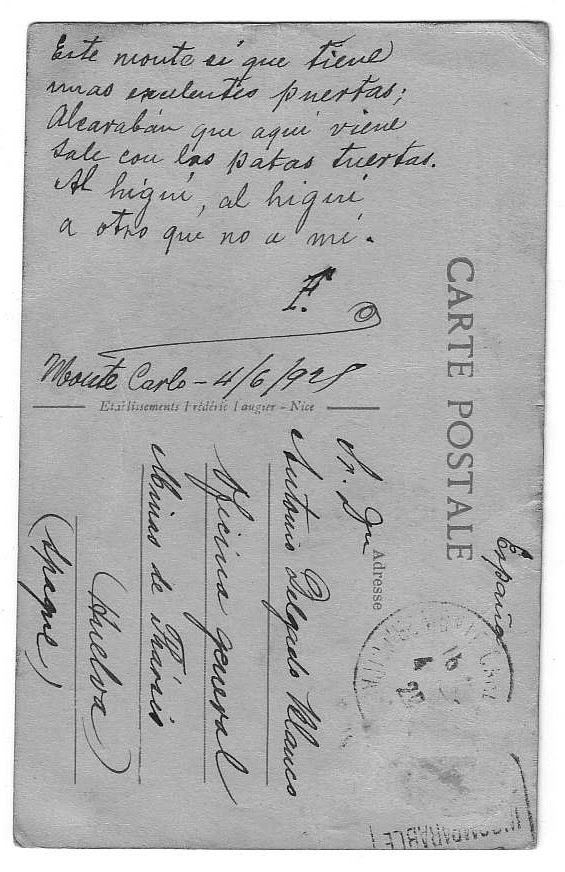 Este monte sí que tiene
unas exelentes puertas;
Alcarabán que aquí viene
sale con las patas tuertas.
Al higuí, al higuí
a otro que no a mí.
F.
Monte Carlo - 4/6/925
Etablissements Frédéric Laugier - Nice
CARTE POSTALE
Adresse
España
Sr. Dn
Antonio Delgado Blanco
Oficina general
Minas de Tharsis
(Huelva)
(Spagne)
16
4
INCOMPARABLE